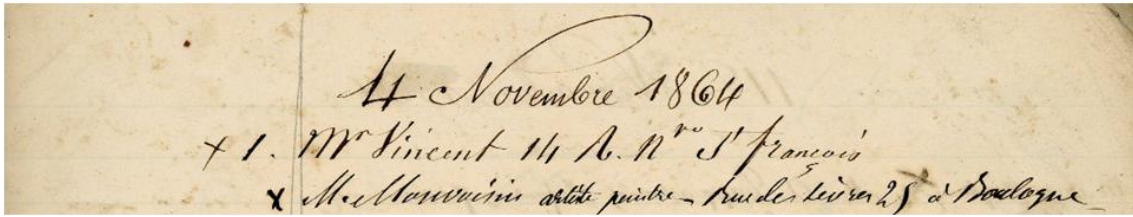 4 Novembre 1864
x 1. Mr Vincent 14 R. Nve St françois
x M. Monvoisin artiste peintre - Rue des 25 à Boulogne